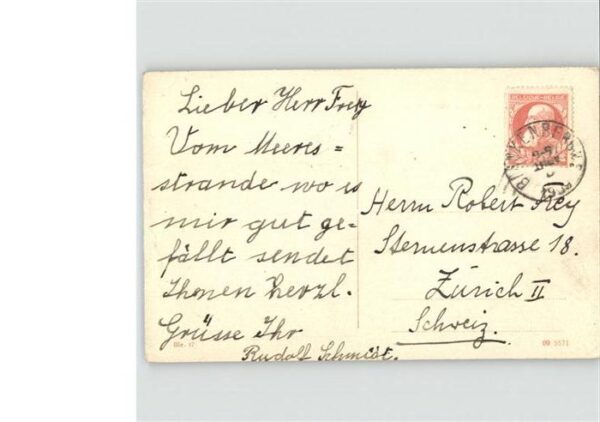 Lieber Herr Frey
Vom Meeres=
strande wo es
mir gut ge-
fällt sendet
Ihnen herzl.
Grüsse Ihr
Rudolf Schmidt.
Herrn Robert Frey
Sternenstrasse 18.
Zürich II
Schweiz.
09 5571